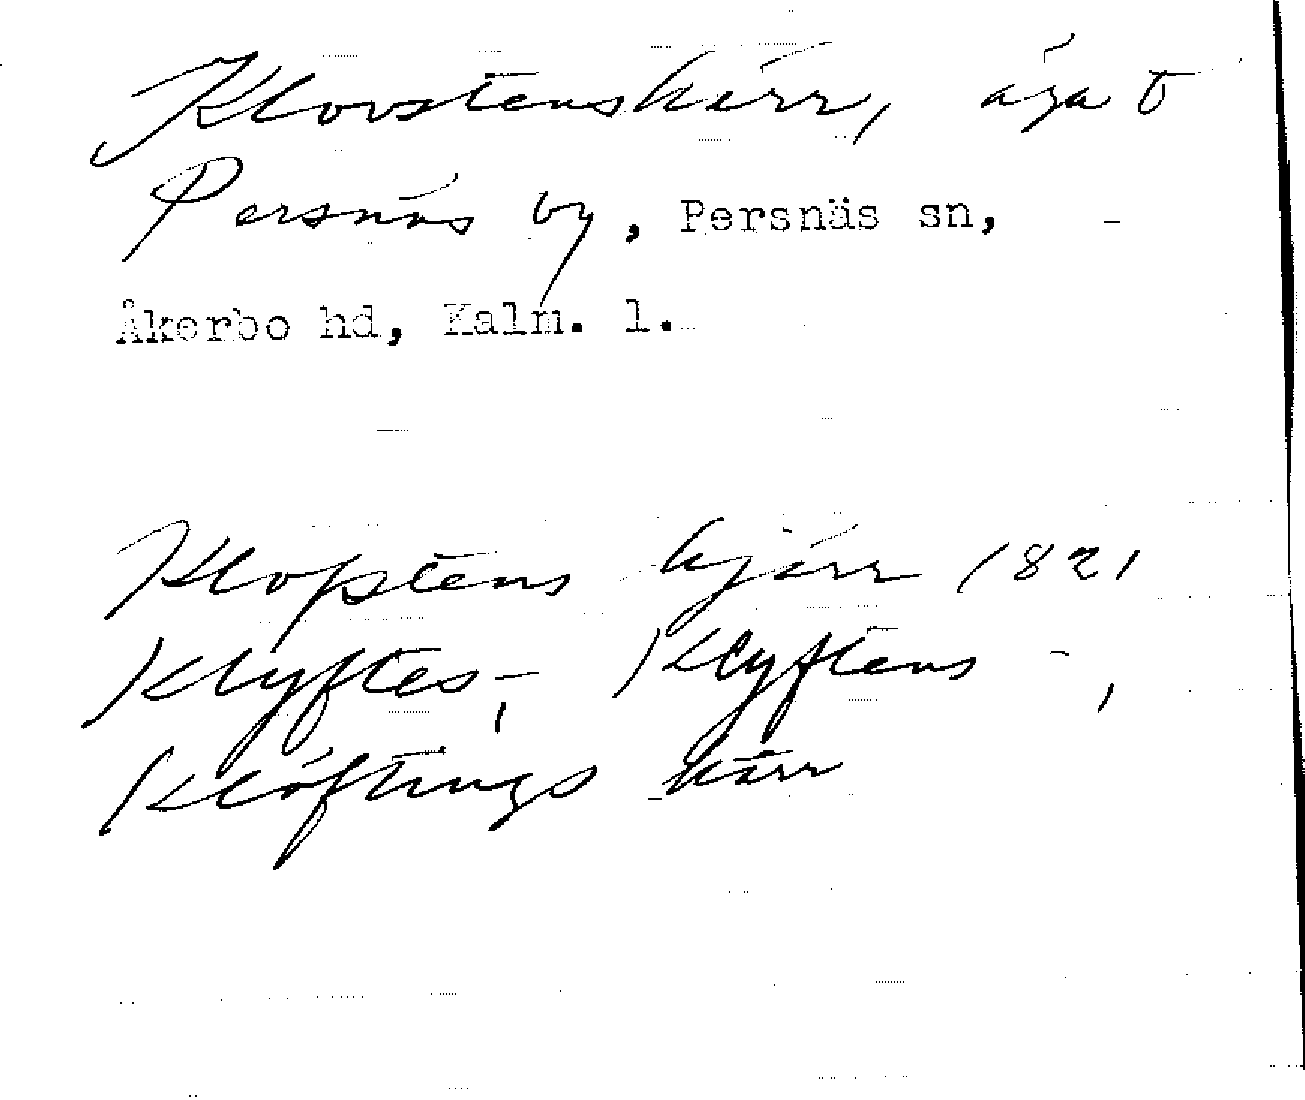 Klovstenskärr, äga t
Persnäs by, Persnäs sn,
Åkerbo hd, Kalm. l.
Klopstens kjärr 1821
Klyftes-, Klyftens -,
Klöftings kärr